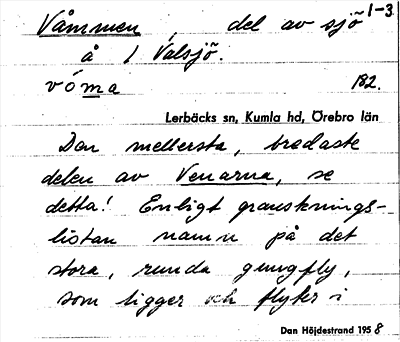 Våmmen, del av sjö 1-3
å 1 Valsjö.
vóma 182.
Lerbäcks sn, Kumla hd, Örebro län
Den mellersta, bredaste
delen av Venarna, se
detta! Enligt gransknings-
listan namn på det
stora, runda gungfly,
som ligger och flyter i
Dan Höjdestrand 1958